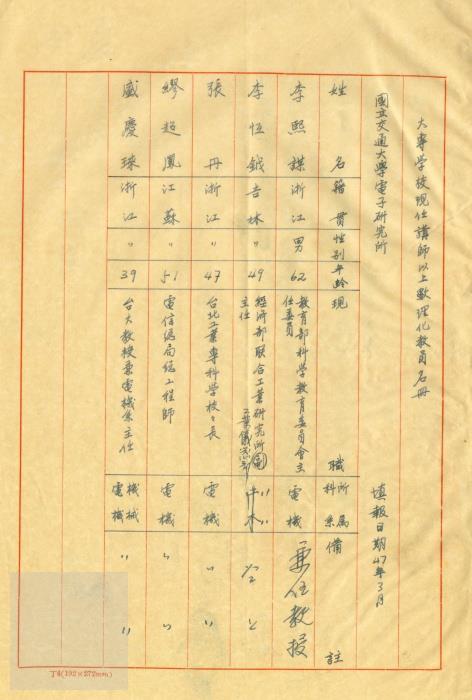 大專學校現任講師以上數理化教員名冊
國立交通大學電子研究所 填報日期47年3月
姓名 籍貫 性別 年齡 現職 所屬科系 備註
李熙謀 浙江 男 62 教育部科學教育委員會主任委員 電機 兼任教授
李恒鉞 吉林 〃 49 經濟部聯合工業研究所副主任 〃 〃
張丹 浙江 〃 47 台北工業專科學校々長 電機 〃 〃
繆超鳳 江蘇 〃 51 電信總局總工程師 電機 〃 〃
盛慶琜 浙江 〃 39 台大教授兼電機系主任 電機 機械 〃 〃
T4(192×272mm)